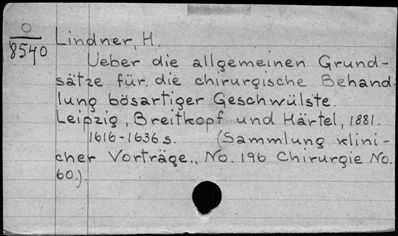 O
8540
Lindner, H.
Ueber die allgemeinen Grund-
sätze für die chirurgische Behand-
lung bösartiger Geschwülste.
Leipzig, Breitkopf und Härtel, 1881.
1616-1636 s. (Sammlung klini-
cher Vorträge., No. 196 Chirurgie No.
60.).